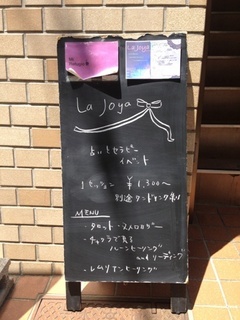 La Joya
La Joya
占いとセラピー
イベント
1セッション ¥1,300〜
別途ワンドリンク
MENU
・タロット・
・チャクラで見る
ハーンヒーリング
and リーディング
・レムリアンヒーリング